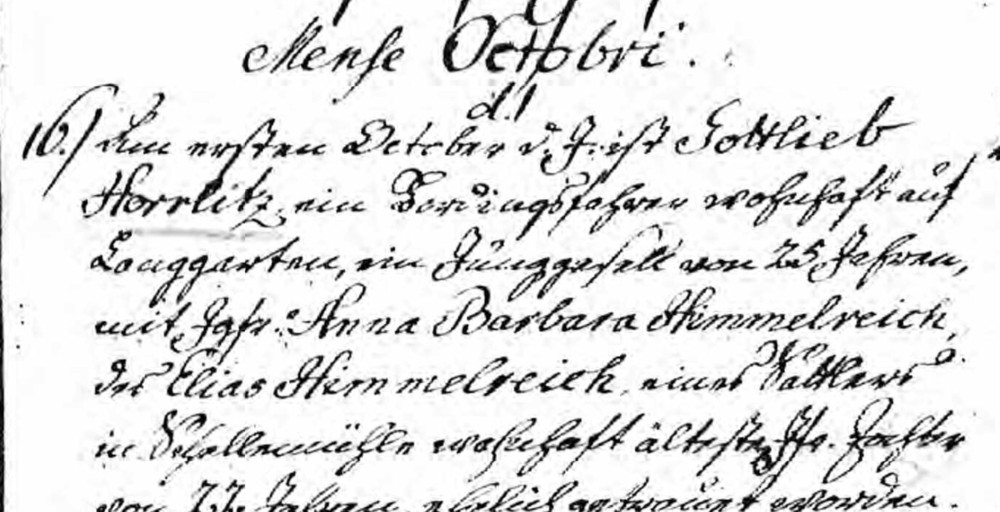 Mense Octobri.
d. 1
16.) Am ersten October d. J. ist Gottlieb
Horrlitz, ein Bordingsfahrer wohnhaft auf
Langgarten, ein Junggesell von 25 Jahren,
mit Jgfr. Anna Barbara Himmelreich,
des Elias Himmelreich, eines Sattlers
in Schellmühle wohnhaft älteste Tochter
von 22 Jahren, ehelich getrauet worden.